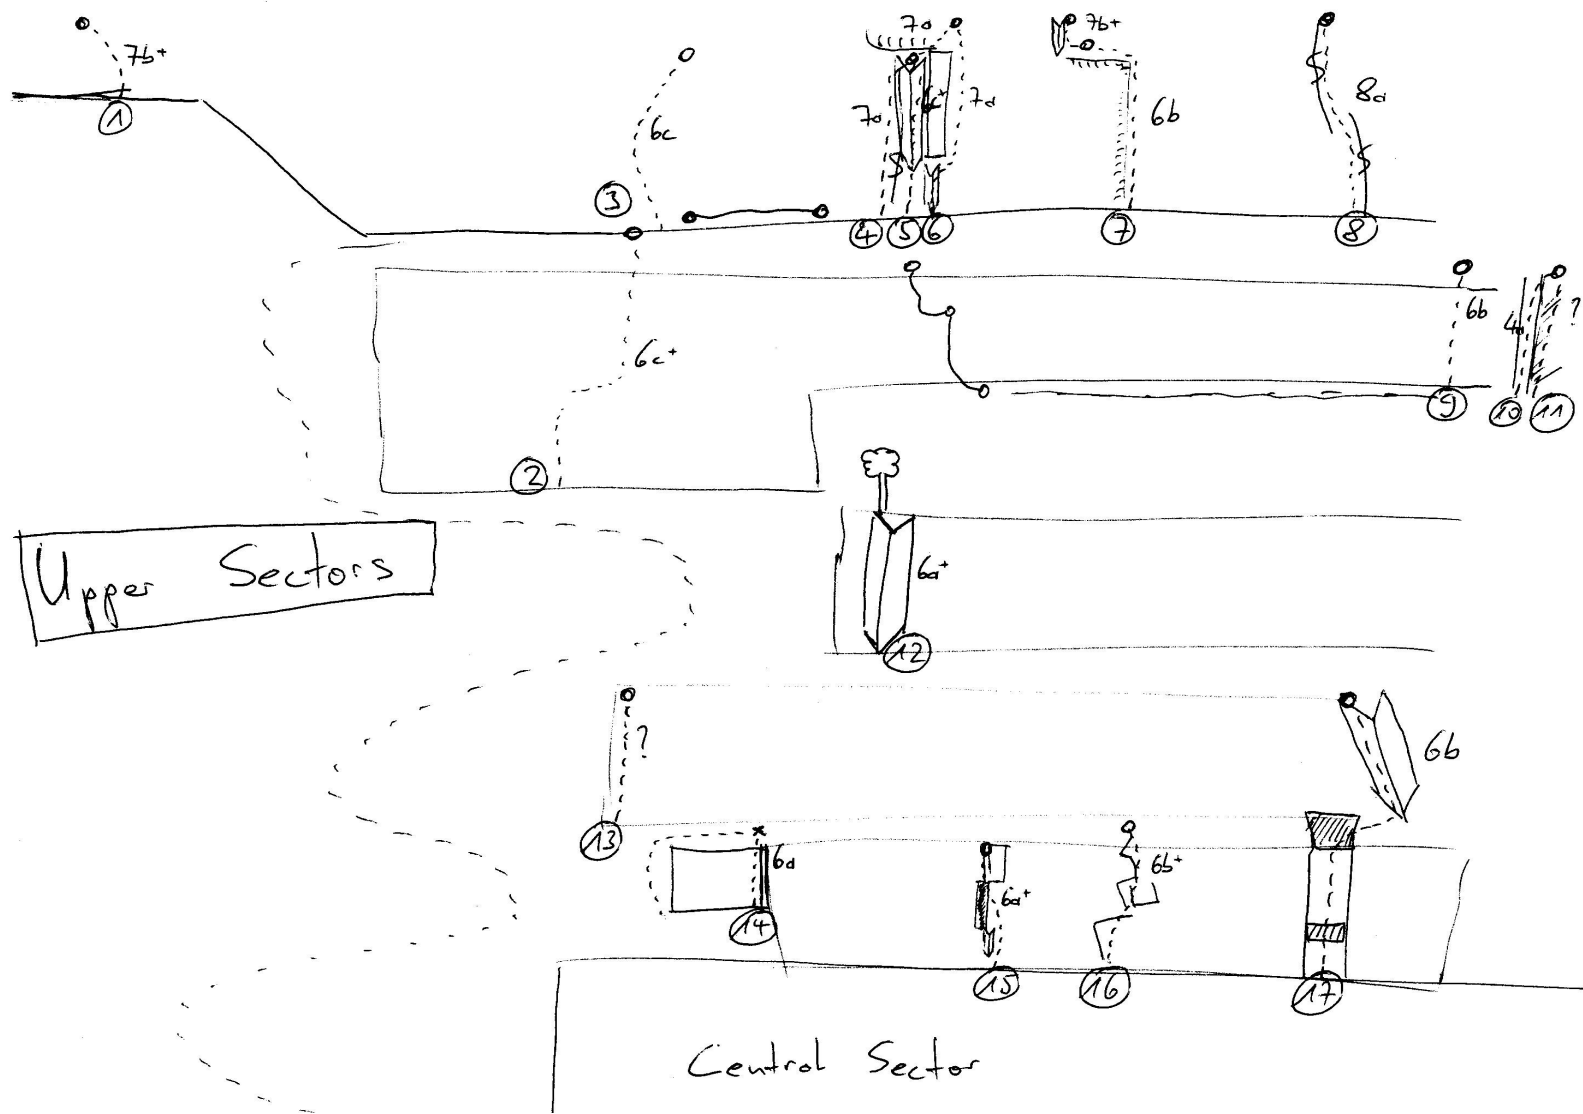 7b+
1
6c
3
7a
7a
6c+
7a
7b+
6b
8a
4
5
6
7
8
6c+
2
6b
9
4a
?
10
11
Upper Sectors
6a+
12
?
13
6b
6a
14
6a+
15
6b+
16
17
Central Sector